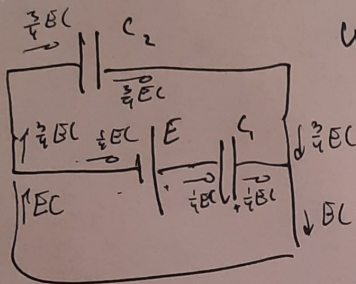 3/4 EC C₂
3/4 EC
3/4 EC 1/4 EC E C₁ 3/4 EC
+ 1/4 EC + 1/4 EC
EC EC